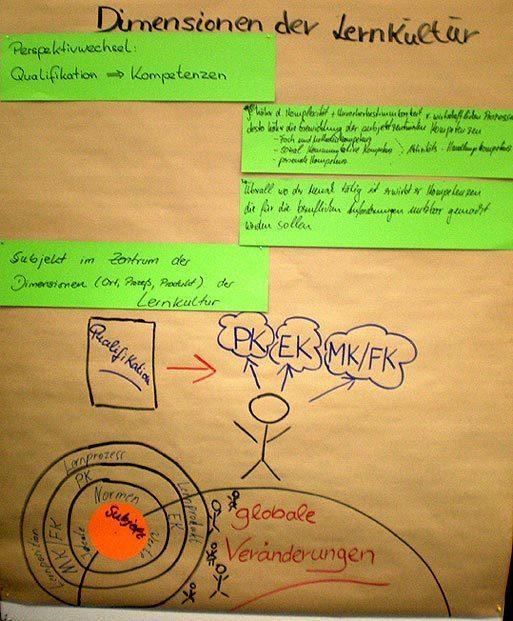 Dimensionen der Lernkultur
Perspektivwechsel:
Qualifikation ⇒ Kompetenzen
Je höher d. Komplexität + Unvorherbestimmbarkeit v. wirtschaftlichen Prozessen
desto höher die Bedeutung der subjektzentrierten Kompetenzen
- Fach und Methodenkompetenz
- sozial kommunikative Kompetenz
- personale Kompetenz
Überall wo der Mensch tätig ist erwirbt er Kompetenzen
die für die beruflichen Anforderungen nutzbar gemacht
werden sollen
Subjekt im Zentrum der
Dimensionen (Ort, Prozeß, Produkt) der
Lernkultur
Qualifikation
PK
EK
MK/FK
Lernprozess
PK
Normen
Lernprodukt
EK
Werte
Subjekt
MK/FK
globale
Veränderungen